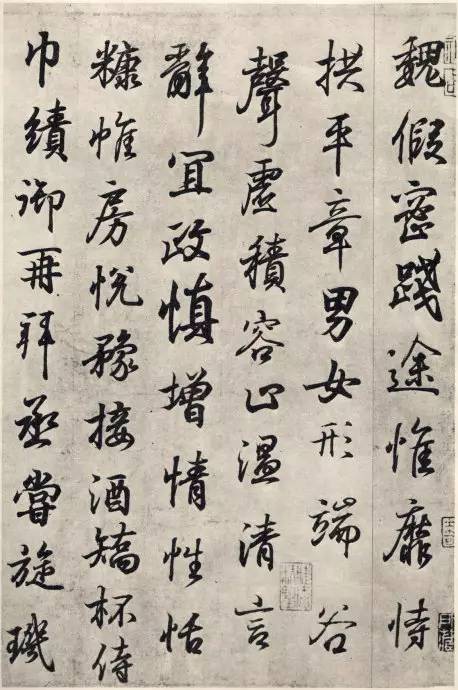 魏假密踐途惟靡恃
拱平章男女形端谷
聲虛積容止温清言
辭宜政慎增情性恬
糠帷房悅豫接酒矯杯侍
巾績御再拜烝嘗旋璣